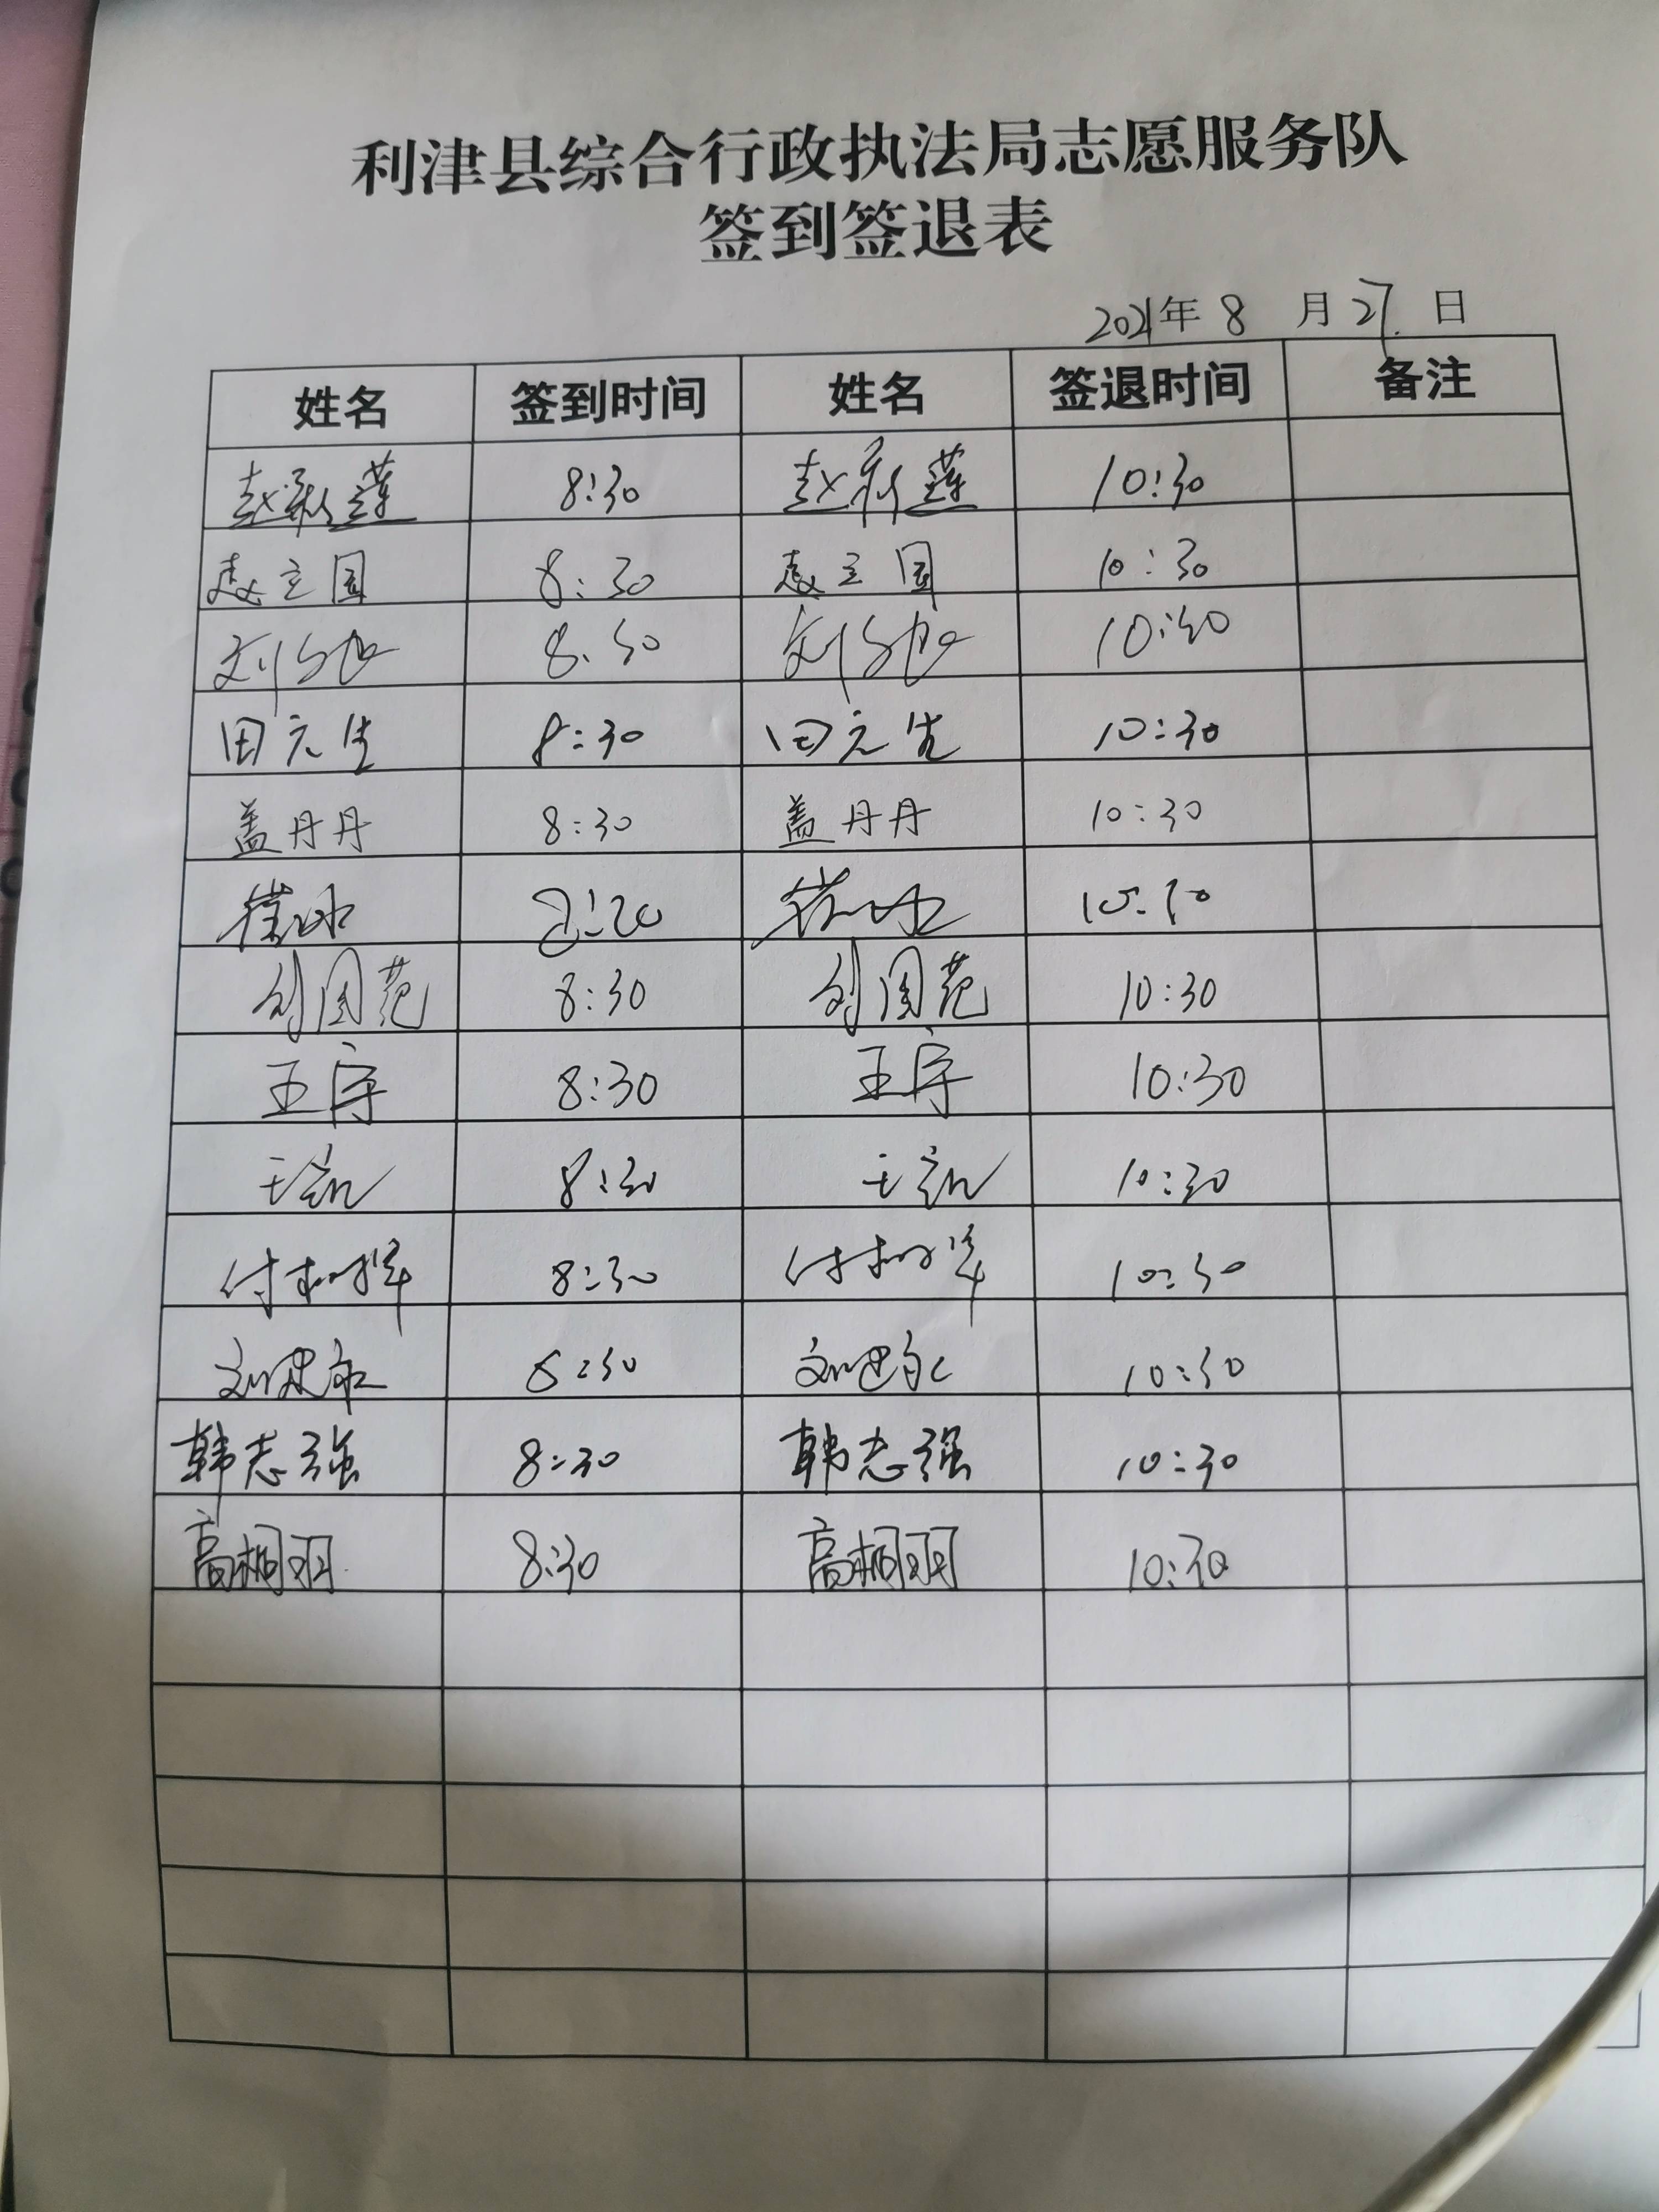 利津县综合行政执法局志愿服务队
签到签退表
2021年 8 月 27 日
姓名 签到时间 姓名 签退时间 备注
赵新莲 8:30 赵新莲 10:30
赵立国 8:30 赵立国 10:30
刘 8:30 刘 10:30
田元生 8:30 田元生 10:30
盖丹丹 8:30 盖丹丹 10:30
崔冰 崔冰 10:30
刘国范 8:30 刘国范 10:30
王宇 8:30 王宇 10:30
王凯 8:30 王凯 10:30
付树军 8:30 付树军 10:30
刘建 8:30 刘建 10:30
韩志强 8:30 韩志强 10:30
高桐羽 8:30 高桐羽 10:30